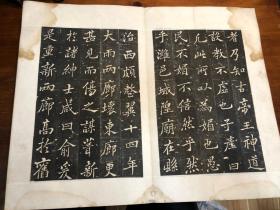 者乃知古帝王神道
設教不虛也子產曰
凡此所以為媚也愚
民不媚不信然乎然
乎濰邑城隍廟在縣
治西頗整翼十四年
大雨兩廊壞東廊更
甚見而傷之謀葺新
於諸紳士咸曰俞爰
是重新兩廊高於舊